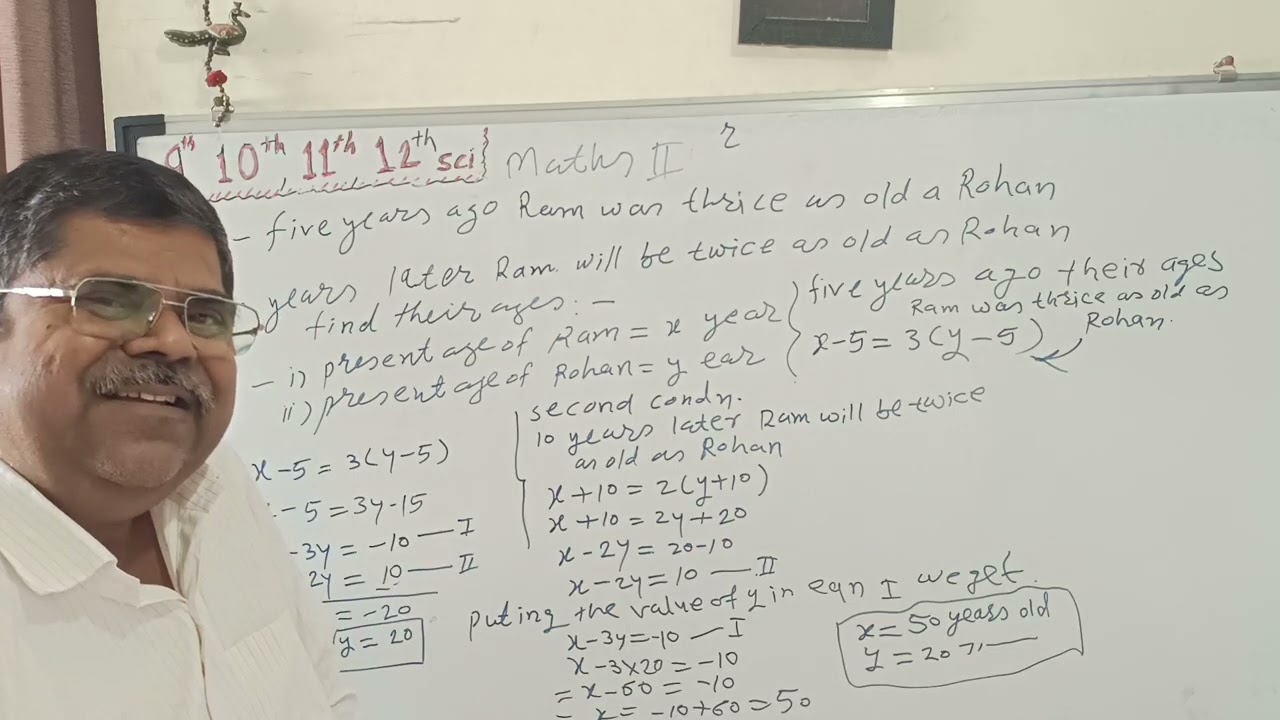 9th 10th 11th 12th sci} Maths II
- five years ago Ram was thrice as old a Rohan
years later Ram will be twice as old as Rohan
find their ages: -
- i) present age of Ram = x year
ii) present age of Rohan = y ear
five years ago their ages
Ram was thrice as old as
Rohan.
x-5 = 3(y-5)
x-5 = 3(y-5)
-5 = 3y-15
-3y = -10 — I
2y = 10 — II
= -20
y = 20
second condn.
10 years later Ram will be twice
as old as Rohan
x+10 = 2(y+10)
x+10 = 2y+20
x-2y = 20-10
x-2y = 10 — II
puting the value of y in eqn I we get.
x-3y = -10 — I
x-3×20 = -10
= x-60 = -10
= x = -10+60 = 50
x = 50 years old
y = 20